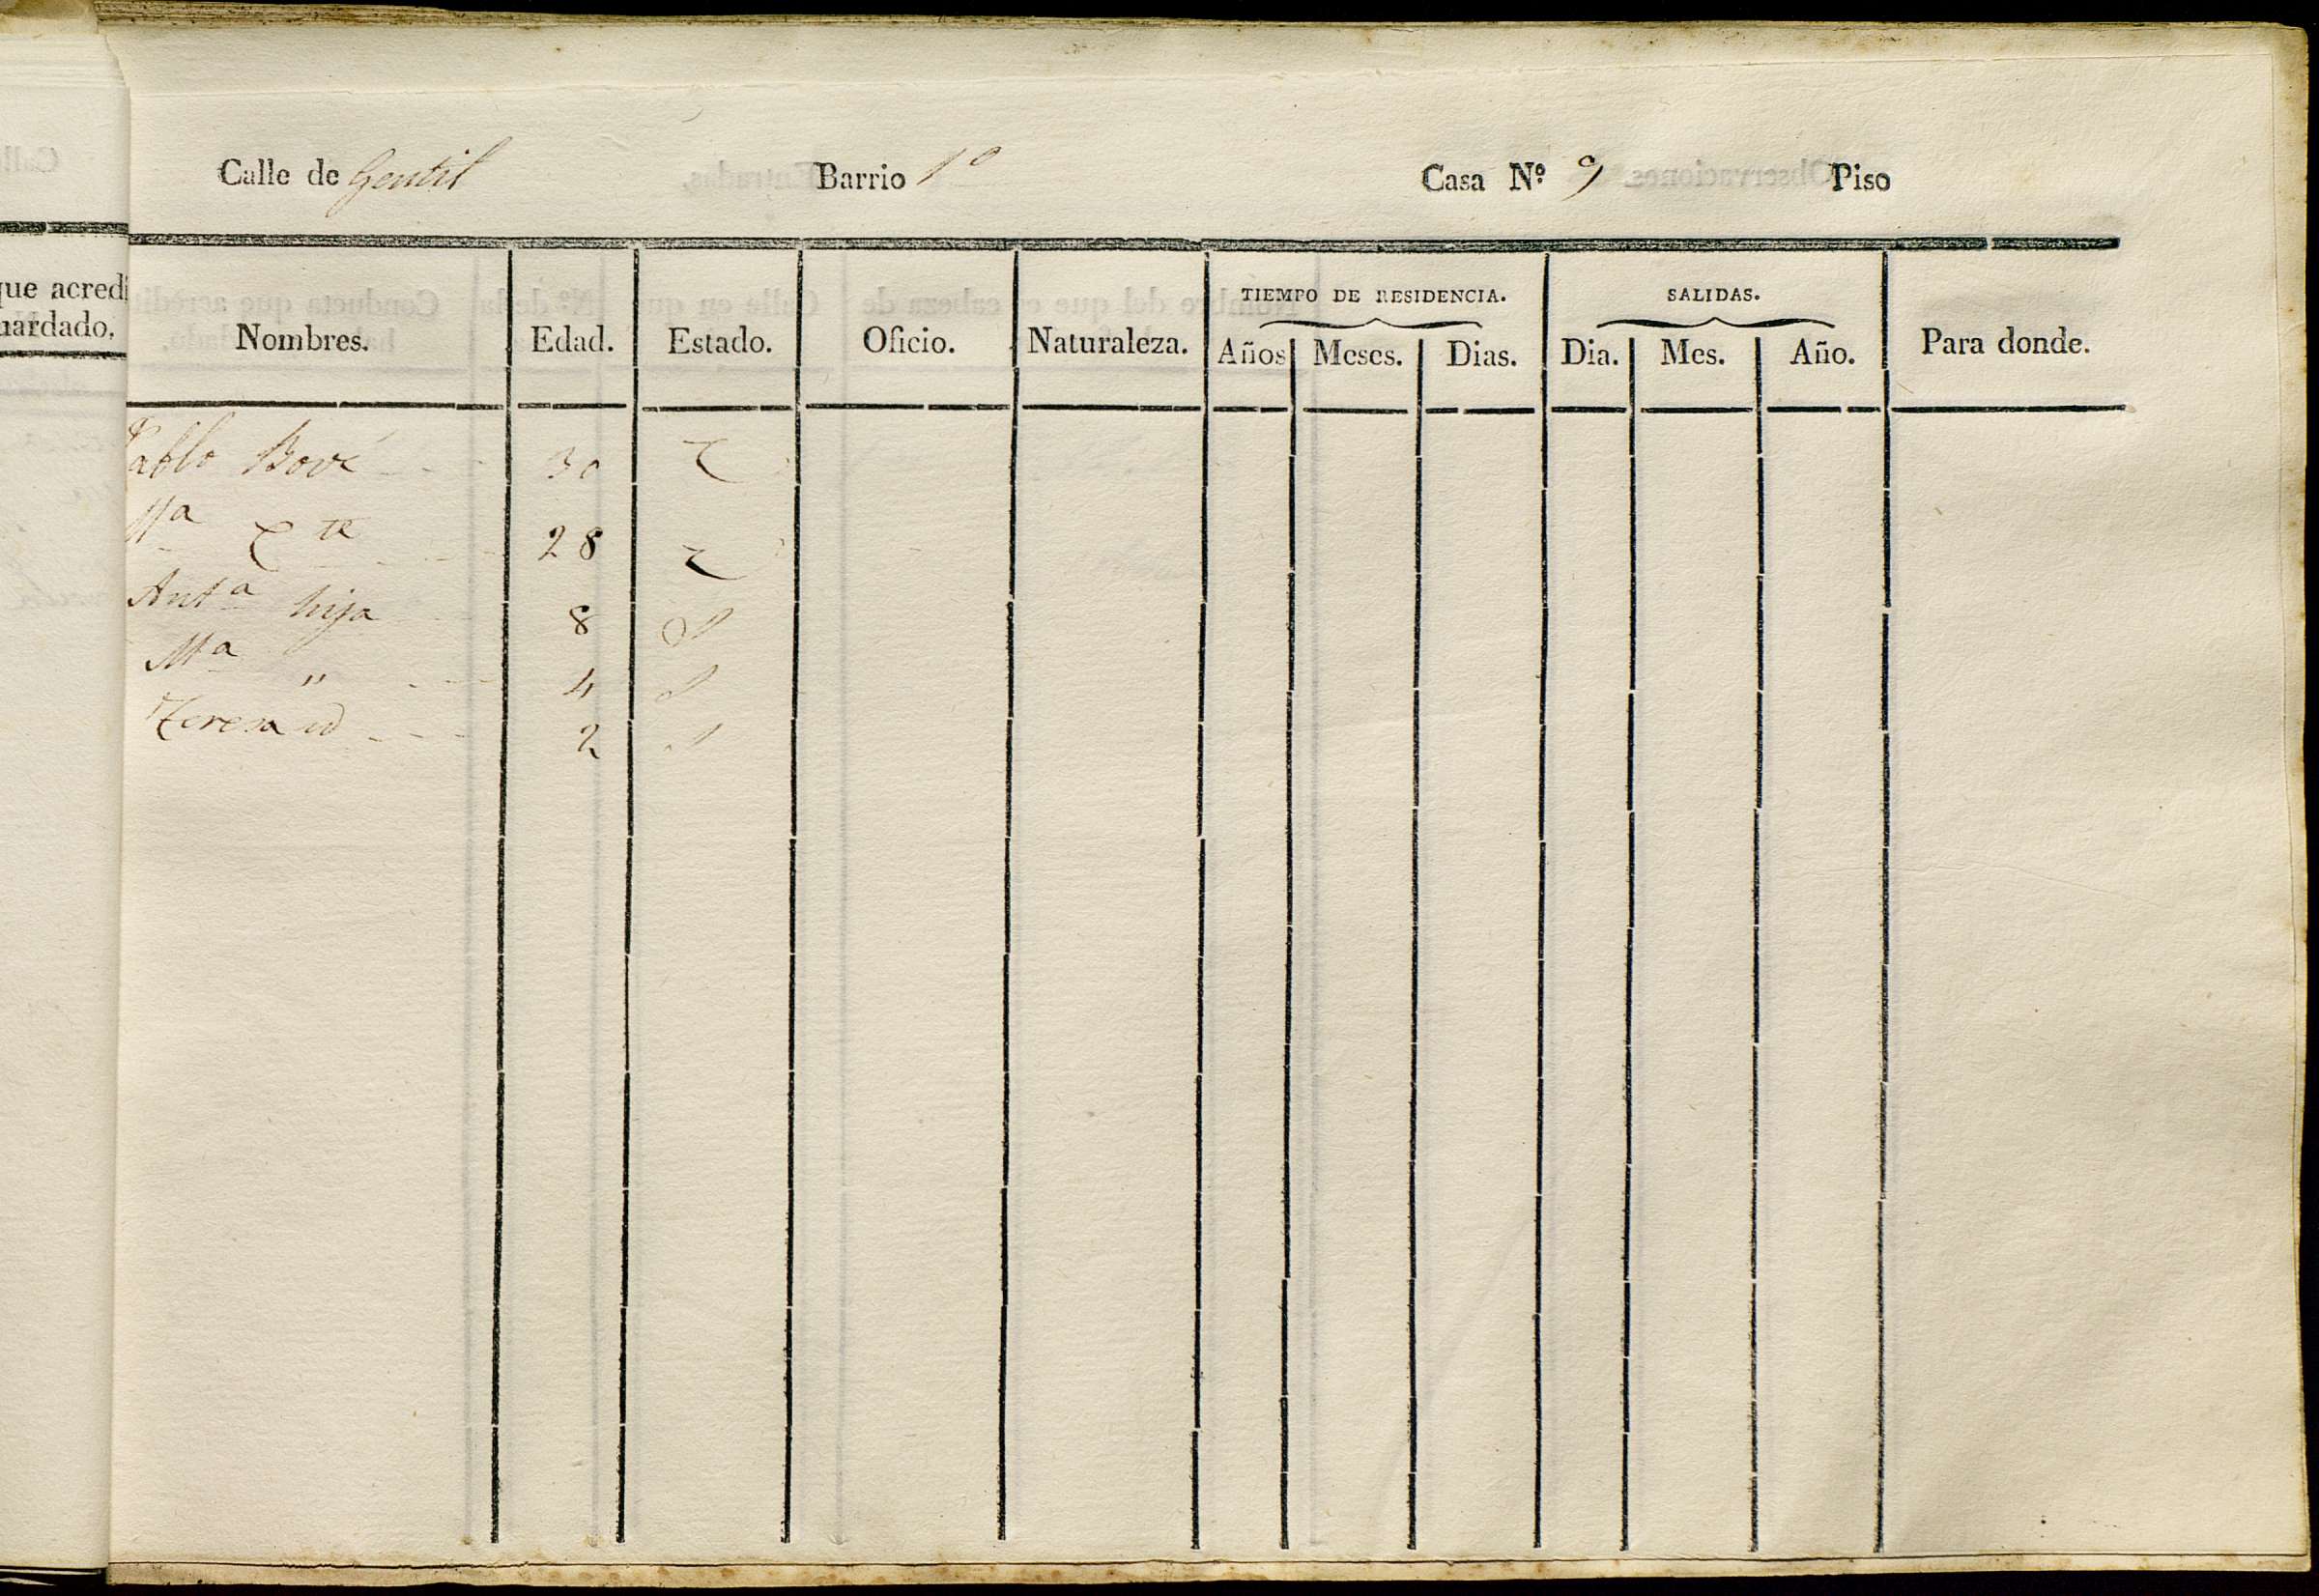 Calle de Gentil Barrio 1º Casa Nº 9 Piso
que acredi
uardado.
TIEMPO DE RESIDENCIA. SALIDAS.
Nombres. Edad. Estado. Oficio. Naturaleza. Años Meses. Dias. Dia. Mes. Año. Para donde.
Pablo Bové 30 C
Mª C te 28 C
Antª hija 8 S
Mª " 4 S
Teresa id 2 S